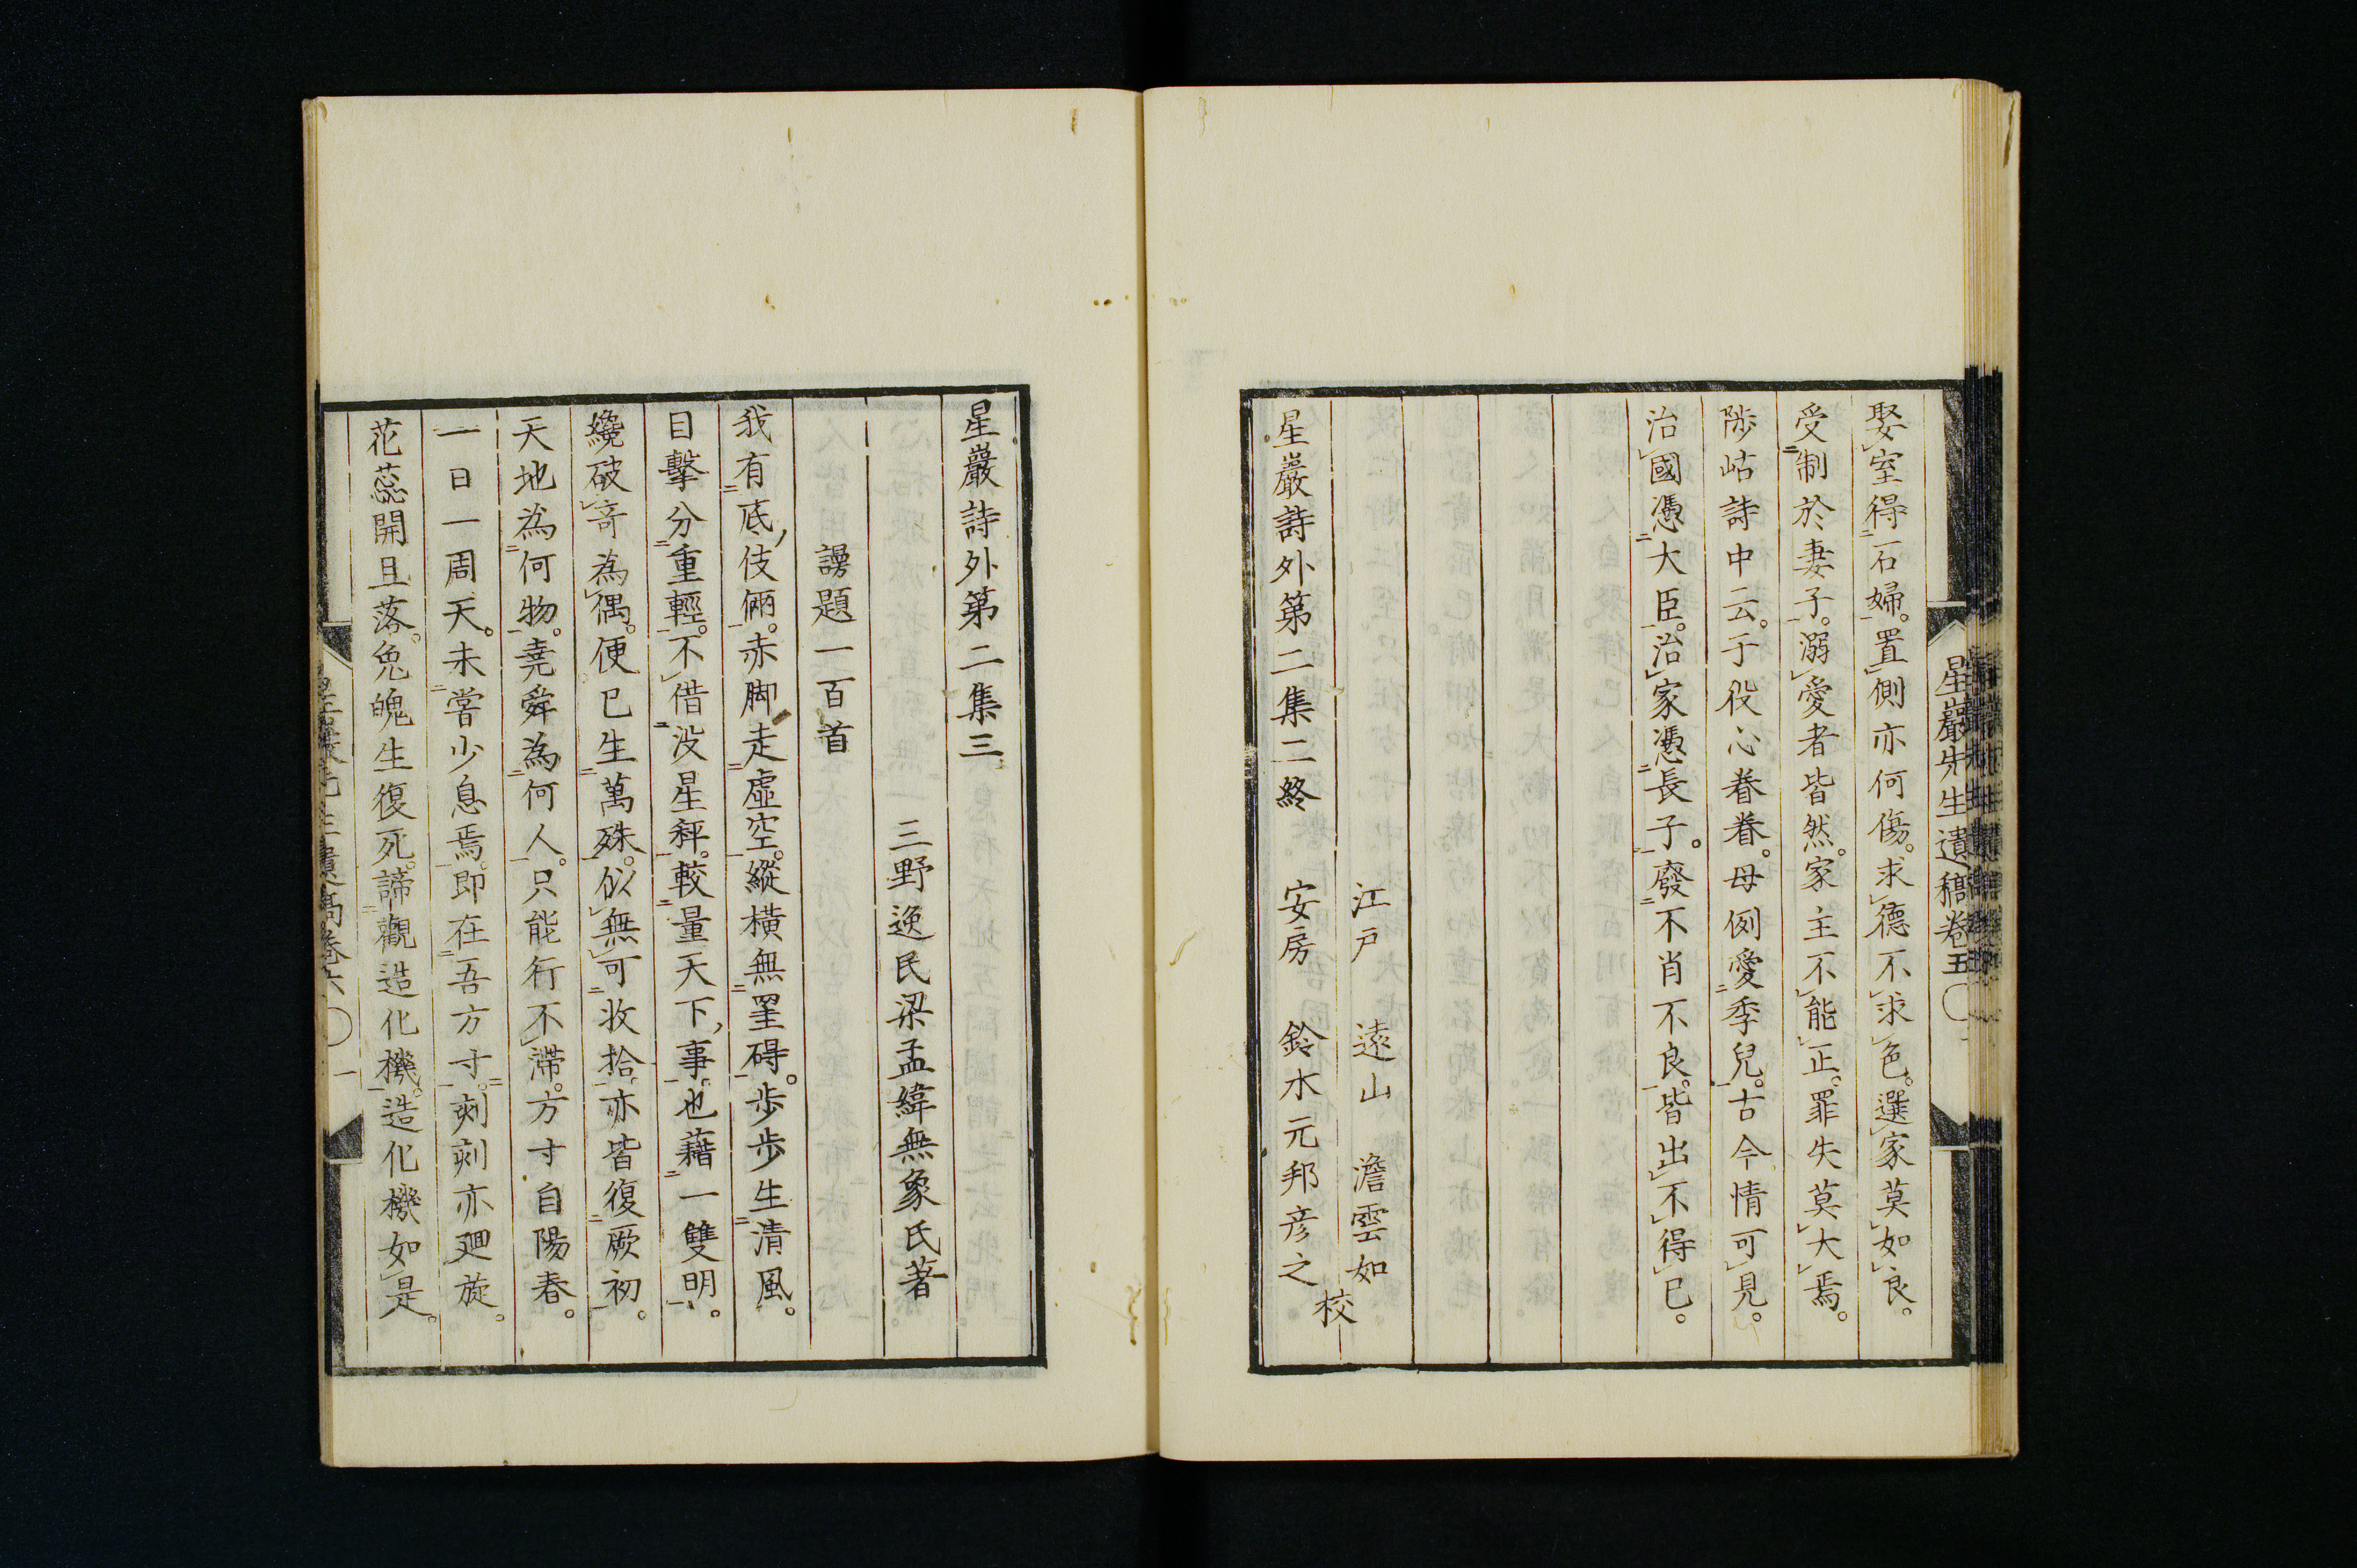 星巖先生遺稿卷五
娶室得石婦。置側亦何傷。求德不求色。選家莫如良。
受制於妻子。溺愛者皆然。家主不能正。罪失莫大焉。
陟岵詩中云。于役心眷眷。母例愛季兒。古今情可見。
治國憑大臣。治家憑長子。廢不肖不良。皆出不得已。
江戶 遠山 澹雲如
星巖詩外第二集二終 安房 鈴木元邦彥之
校
星巖詩外第二集三
三野逸民梁孟緯無象氏著
謾題一百首
我有底伎倆。赤脚走虛空。縱橫無罣碍。步步生清風。
目擊分重輕。不借没星秤。較量天下事。也藉一雙明。
纔破奇為偶。便已生萬殊。似無可收拾。亦皆復厥初。
天地為何物。堯舜為何人。只能行不滯。方寸自陽春。
一日一周天。未嘗少息焉。即在吾方寸。刻刻亦廻旋。
花蕊開且落。兔魄生復死。諦觀造化機。造化機如是。